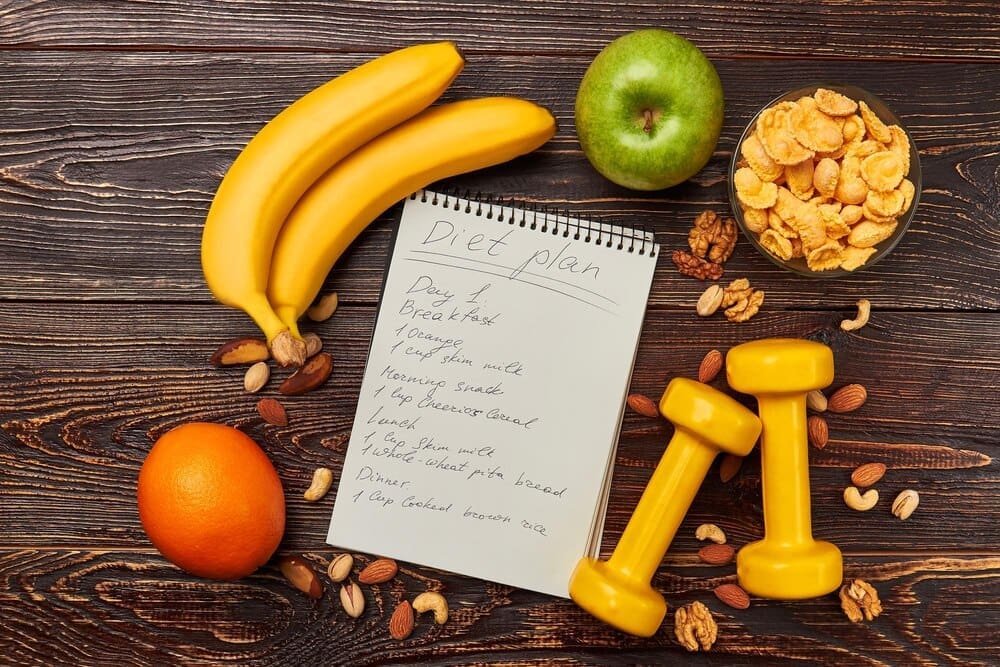 Diet plan
Day 1.
Breakfast
1 Orange
1 cup skim milk
Morning snack
1 cup Cheerios Cereal
Lunch
1 cup skim milk
1 whole-wheat pita bread
Dinner
1 cup cooked brown rice